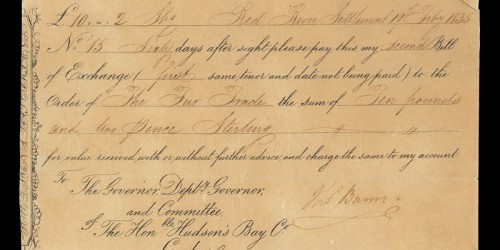 £ 10 .. 2 Stg Red River Settlement 13th Feby 1835
No. 15 Sixty days after sight please pay this my second Bill
of Exchange (first same tenor and date not being paid) to the
Order of The Fur Trade the sum of Ten pounds
and two Pence Sterling
for value received with or without further advice, and charge the same to my account
To The Governor, Depty. Governor,
and Committee,
of The Honble Hudson's Bay Co
Thos Bunn